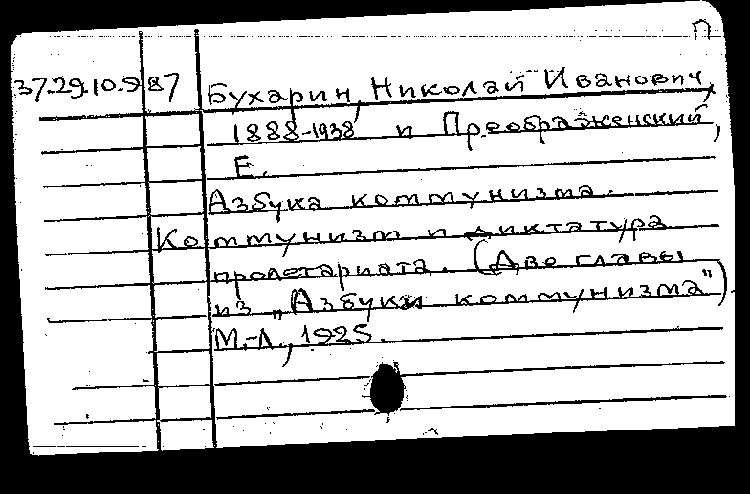 П
37.29.10.9 87 Бухарин, Николай Иванович,
1888-1938 и Преображенский,
Е.
Азбука коммунизма.
Коммунизм и диктатура
пролетариата. (Две главы
из „Азбуки коммунизма").
М.-Л., 1925.